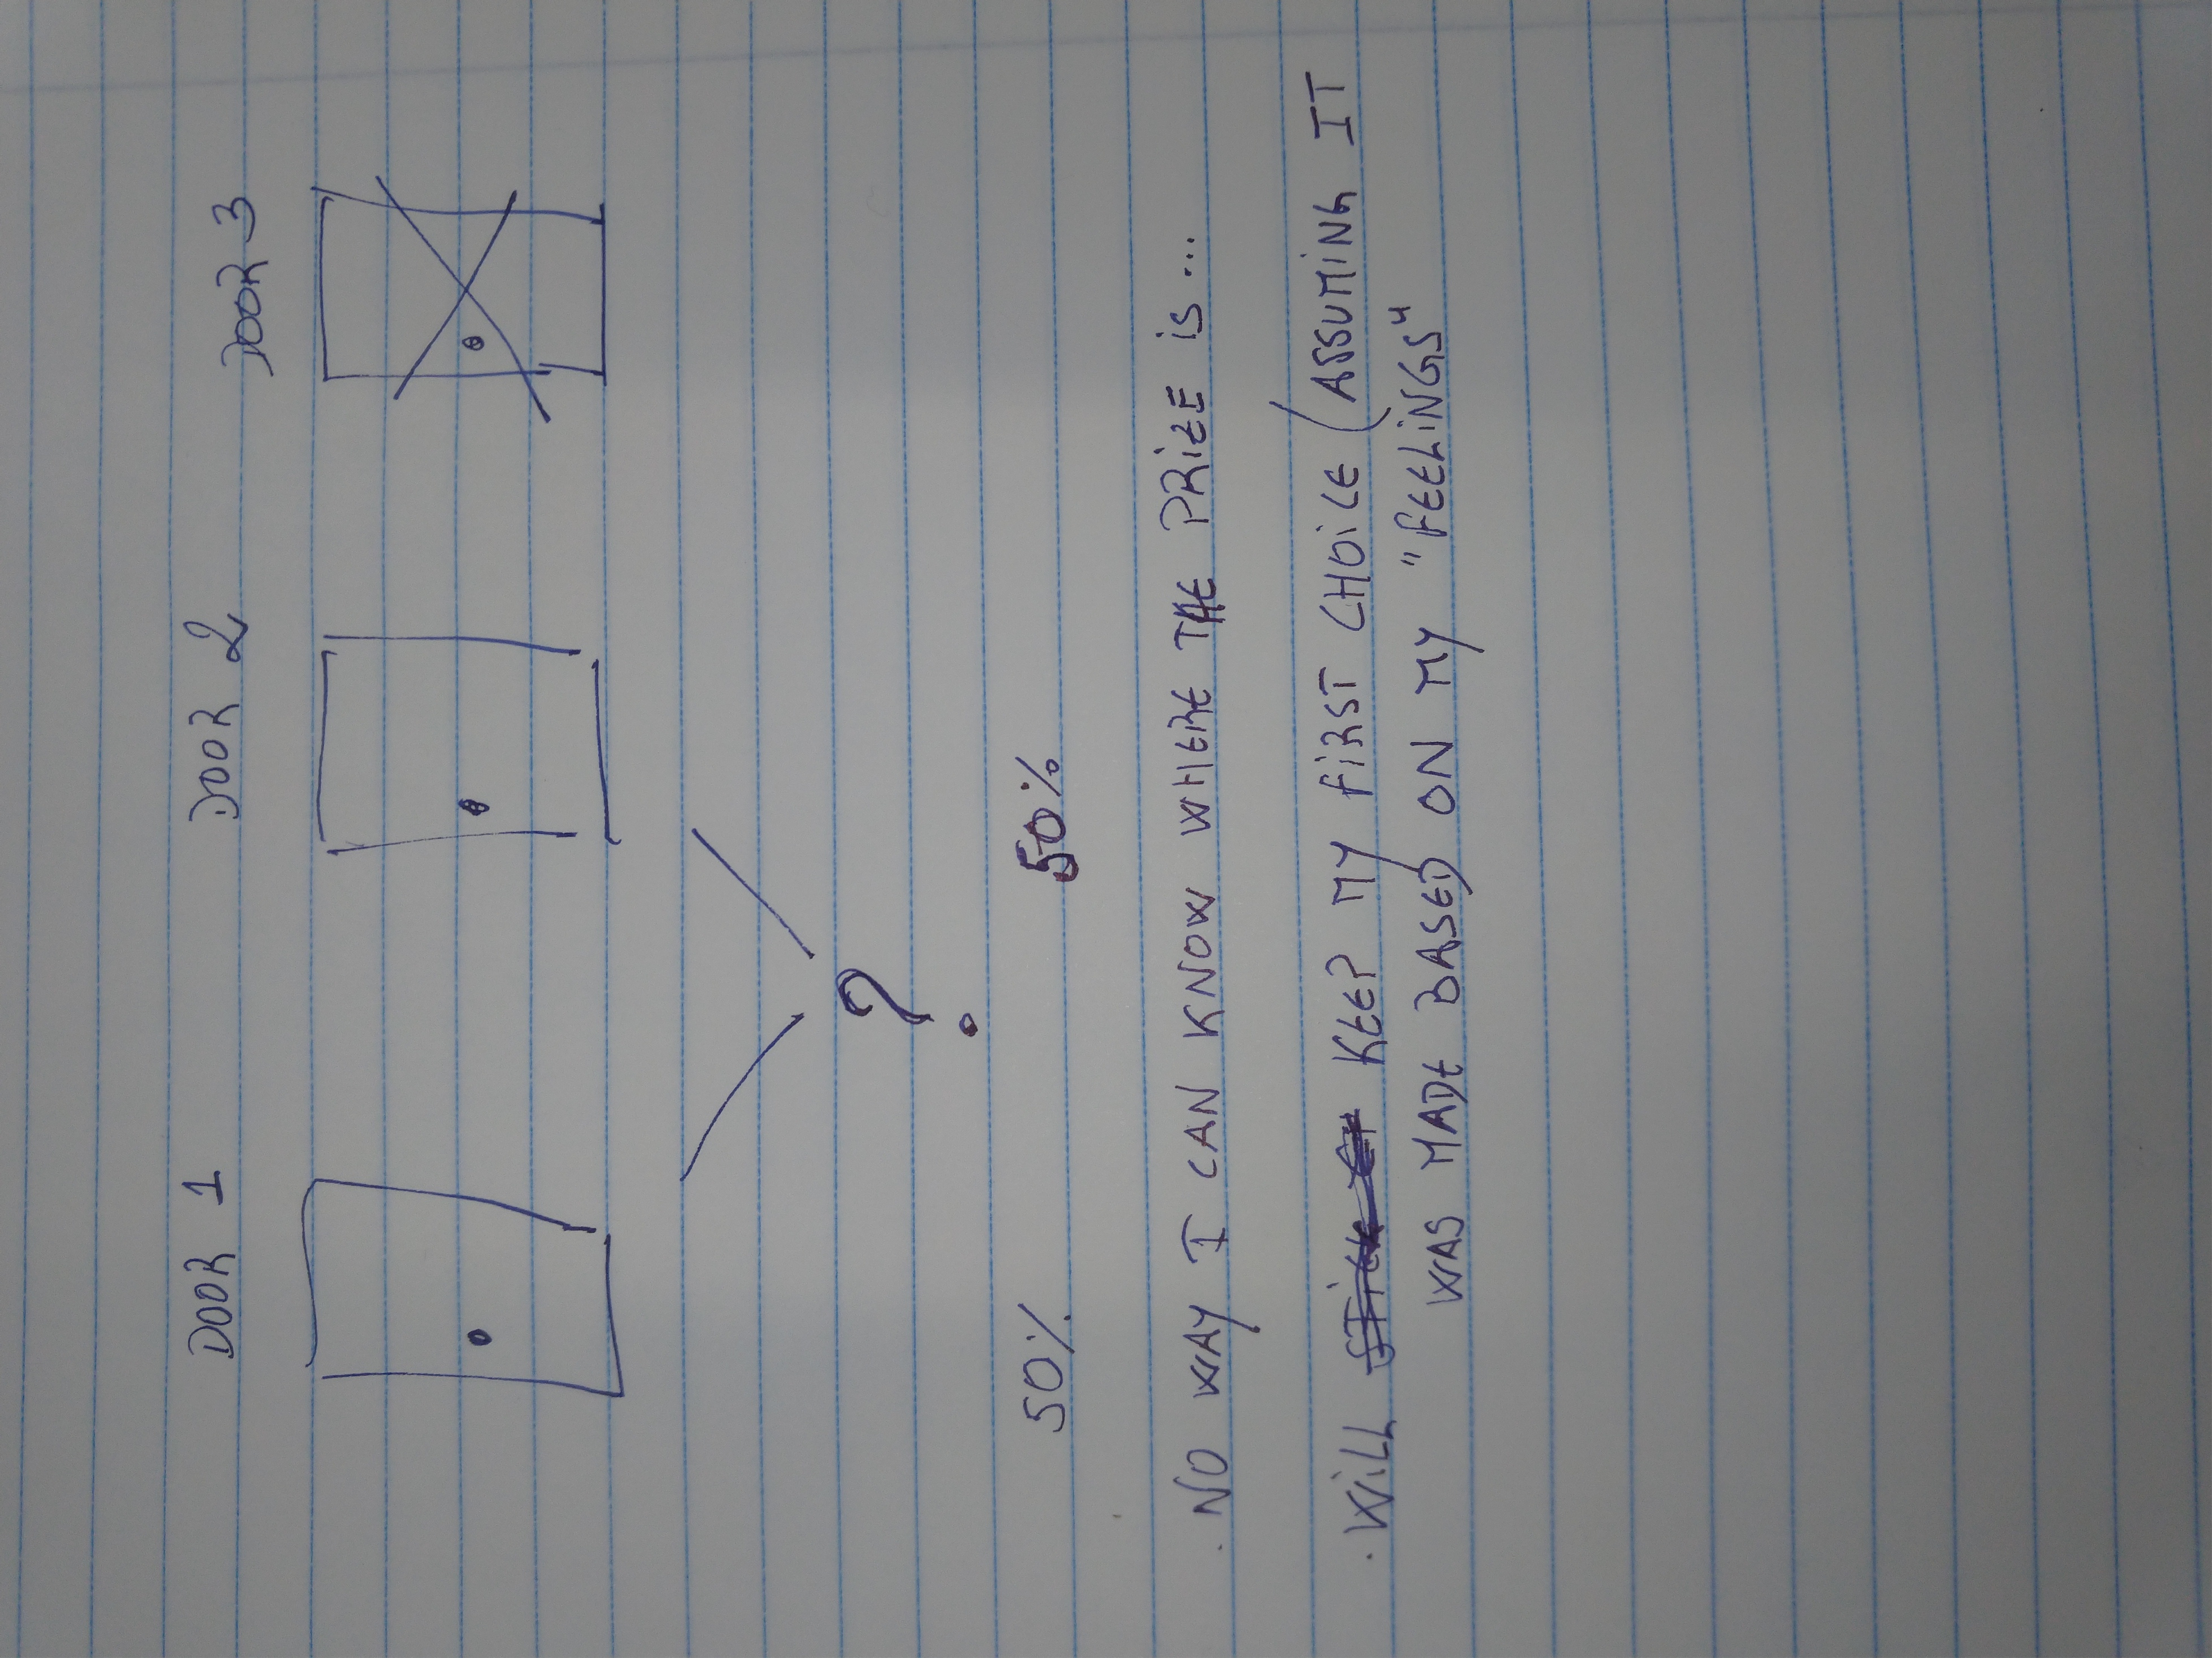 DOOR 1 DOOR 2 DOOR 3
?
50% 50%
. NO WAY I CAN KNOW WHERE THE PRIZE IS...
. WILL KEEP MY FIRST CHOICE (ASSUMING IT
WAS MADE BASED ON MY "FEELINGS"